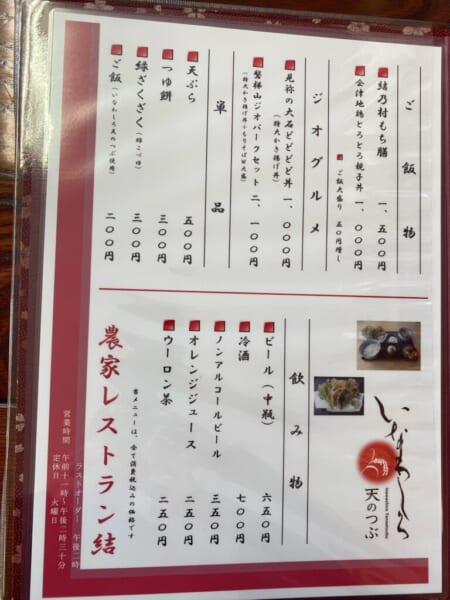 ご飯物
結乃村もち膳 一、五〇〇円
会津地鶏とろとろ親子丼 一、〇〇〇円
ご飯大盛り 五〇円増し
ジオグルメ
見祢の大石どどどど丼 一、〇〇〇円
（特大かき揚げ丼）
磐梯山ジオパークセット 二、一〇〇円
（特大かき揚げ丼＋もりそばW大盛）
単品
天ぷら 五〇〇円
つゆ餅 三〇〇円
縁ざくざく（縁こづゆ） 三〇〇円
ご飯（いなわしろ天のつぶ使用） 二〇〇円
いなわしろ
Inawashiro Tennotsubu
天のつぶ
飲み物
ビール（中瓶） 六五〇円
冷酒 七〇〇円
ノンアルコールビール 三五〇円
オレンジジュース 二五〇円
ウーロン茶 二五〇円
当メニューは、全て消費税込みの価格です
農家レストラン結
ラストオーダー 午後二時
営業時間 午前十一時〜午後二時三十分
定休日 火曜日